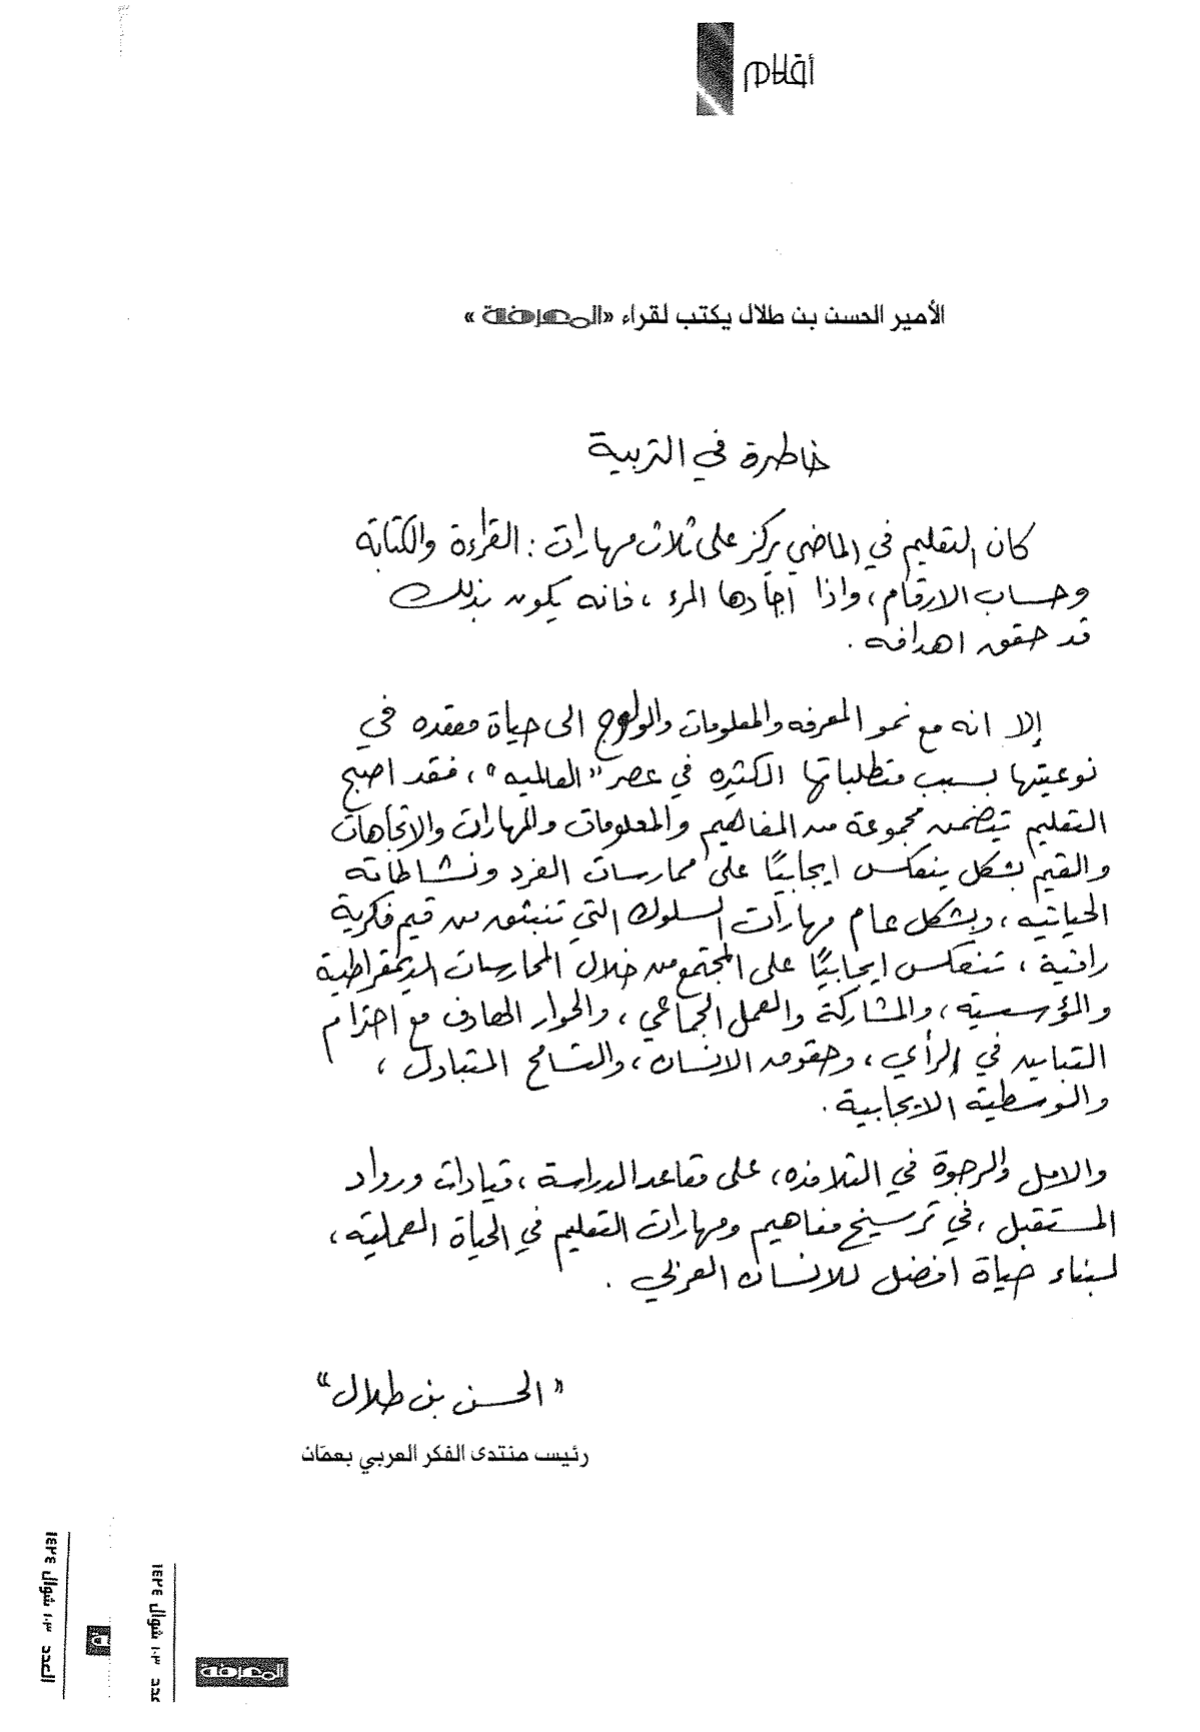 أقلام
الأمير الحسن بن طلال يكتب لقراء «المعرفة»
خاطرة في التربية
كان التعليم في الماضي يركز على ثلاث مهارات : القراءة والكتابة
وحساب الارقام ، واذا أجادها المرء ، فانه يكون بذلك
قد حقق اهدافه .
إلا انه مع نمو المعرفه والمعلومات والولوج الى حياة معقده في
نوعيتها بسبب متطلباتها الكثيره في عصر "العالميه" ، فقد اصبح
التعليم يتضمن مجموعة من المفاهيم والمعلومات والمهارات والاتجاهات
والقيم بشكل ينعكس ايجابيًا على ممارسات الفرد ونشاطاته
الحياتيه ، وبشكل عام مهارات السلوك التي تنبثق من قيم فكرية
راقية ، تنعكس ايجابيًا على المجتمع من خلال الممارسات الديمقراطية
والمؤسسيه ، والمشاركة والعمل الجماعي ، والحوار الهادف مع احترام
التباين في الرأي ، وحقوق الانسان ، والتسامح المتبادل ،
والوسطية الايجابية .
والامل والرجوة في التلامذه ، على مقاعد الدراسة ، قيادات ورواد
المستقبل ، في ترسيخ مفاهيم ومهارات التعليم في الحياة العمليه ،
لبناء حياة افضل للانسان العربي .
"الحسن بن طلال"
رئيس منتدى الفكر العربي بعمّان
العدد ١٠٣ شوال ١٤٢٤
عدد ١٠٣ شوال ١٤٢٤
المعرفة